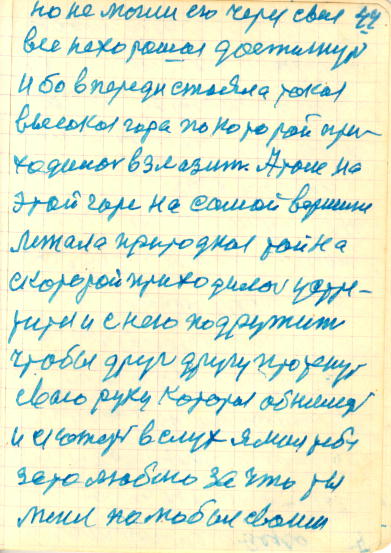 но не могли ею через свая 44
все нехорошая достигнут
И бо впереди стояла такая
высокая гора по которой при-
ходилось взлазит. А там на
этой горе на самой вершине
лежала природная тайна
с которой приходилось устре-
тится и с нею подружит
чтобы друг другу протянут
свою руку которая обнимет
и скажет вслух я мая тебя
зато люблю за что ты
меня полюбил своим